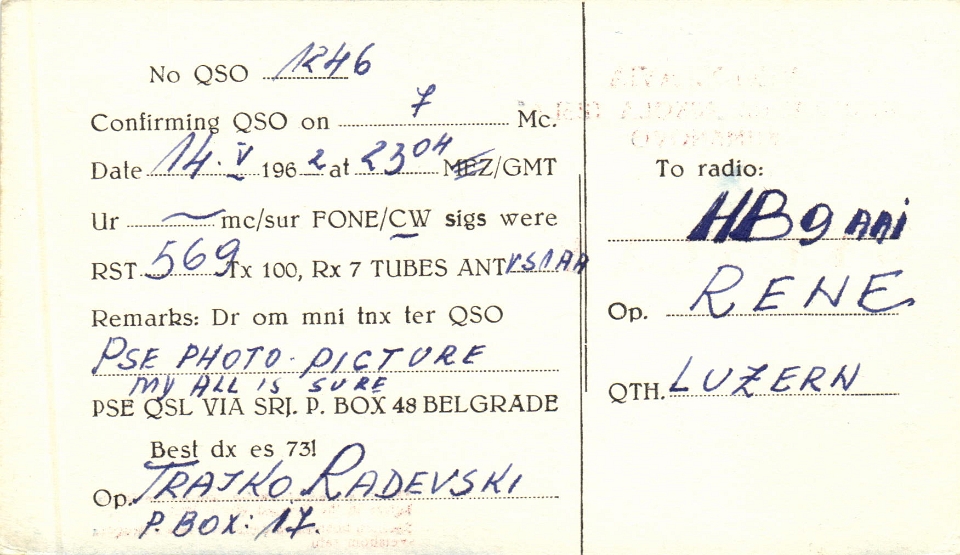 No QSO 1246
Confirming QSO on 7 Mc.
Date 14. V 1962 at 2304 MEZ/GMT
Ur ~ mc/sur FONE/CW sigs were
RST 569 Tx 100, Rx 7 TUBES ANT VS1AA
Remarks: Dr om mni tnx ter QSO
PSE PHOTO. PICTURE
MY ALL IS SURE
PSE QSL VIA SRJ. P. BOX 48 BELGRADE
Best dx es 73!
Op. TRAJKO RADEVSKI
P. BOX: 17.
To radio:
HB9AAI
Op. RENE
QTH. LUZERN